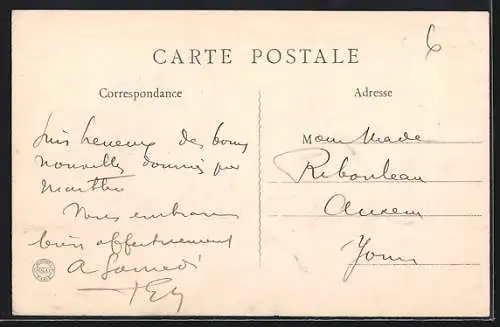 6
CARTE POSTALE
Correspondance
Adresse
suis heureux des bonnes
nouvelles données par
Marthe
Nous embrassons
bien affectueusement
A Samedi
M
Ribouleau
Auxerre
Yonne